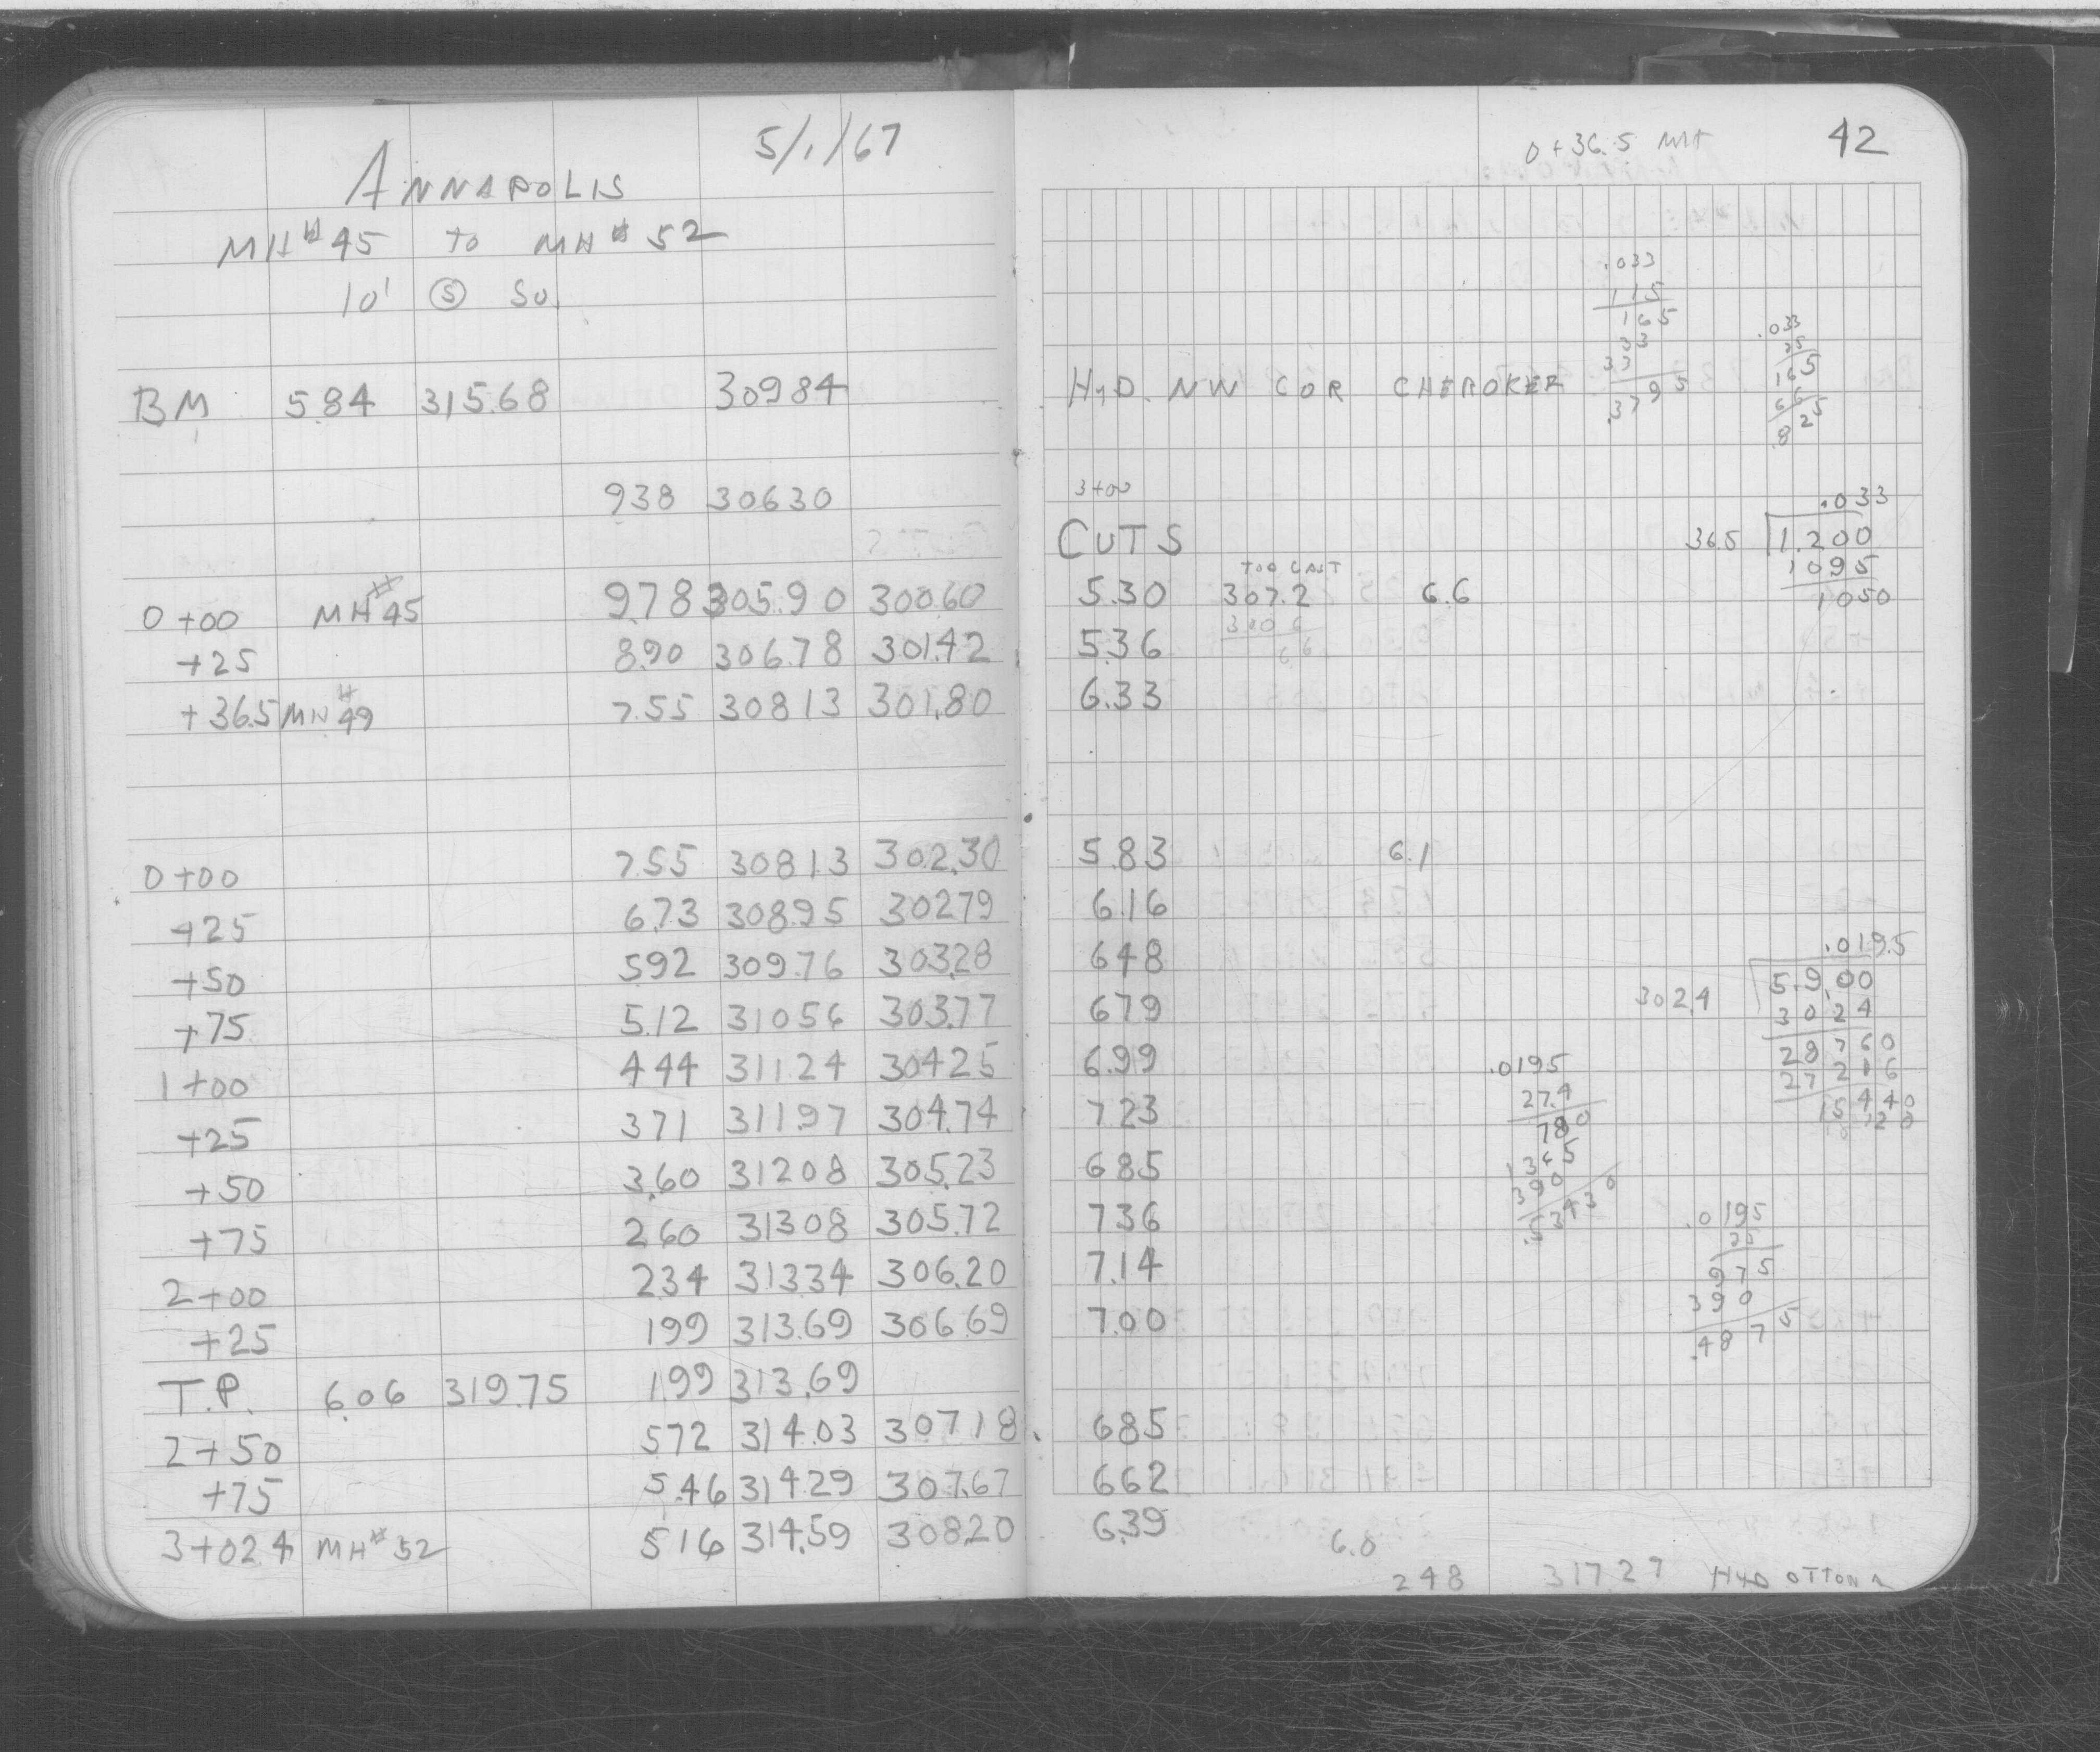 5/1/67
ANNAPOLIS
MH# 45 to MH# 52
10' Ⓢ So.
BM 5.84 315.68 309.84
9.38 306.30
0+00 MH#45 9.78 305.90 300.60
+25 8.90 306.78 301.42
+36.5 MH#49 7.55 308.13 301.80
0+00 7.55 308.13 302.30
+25 6.73 308.95 302.79
+50 5.92 309.76 303.28
+75 5.12 310.56 303.77
1+00 4.44 311.24 304.25
+25 3.71 311.97 304.74
+50 3.60 312.08 305.23
+75 2.60 313.08 305.72
2+00 2.34 313.34 306.20
+25 1.99 313.69 306.69
T.P. 6.06 319.75 1.99 313.69
2+50 5.72 314.03 307.18
+75 5.46 314.29 307.67
3+02.4 MH#52 5.16 314.59 308.20
0+36.5 MH
42
HYD. NW COR CHEROKEE
.033
115
165
33
33
.3795
.033
25
165
66
.825
3+00
CUTS
5.30 307.2 6.6
5.36 300.6
6.6
6.33
.033
36.5 1.200
1095
1050
5.83 6.1
6.16
6.48
6.79
6.99
7.23
6.85
7.36
7.14
7.00
6.85
6.62
6.39
.0195
302.4 5.900
3024
28760
27216
15440
.0195
27.4
780
1365
390
.53430
.0195
25
975
390
.4875
6.0
2.48 317.27 HYD OTTOWA